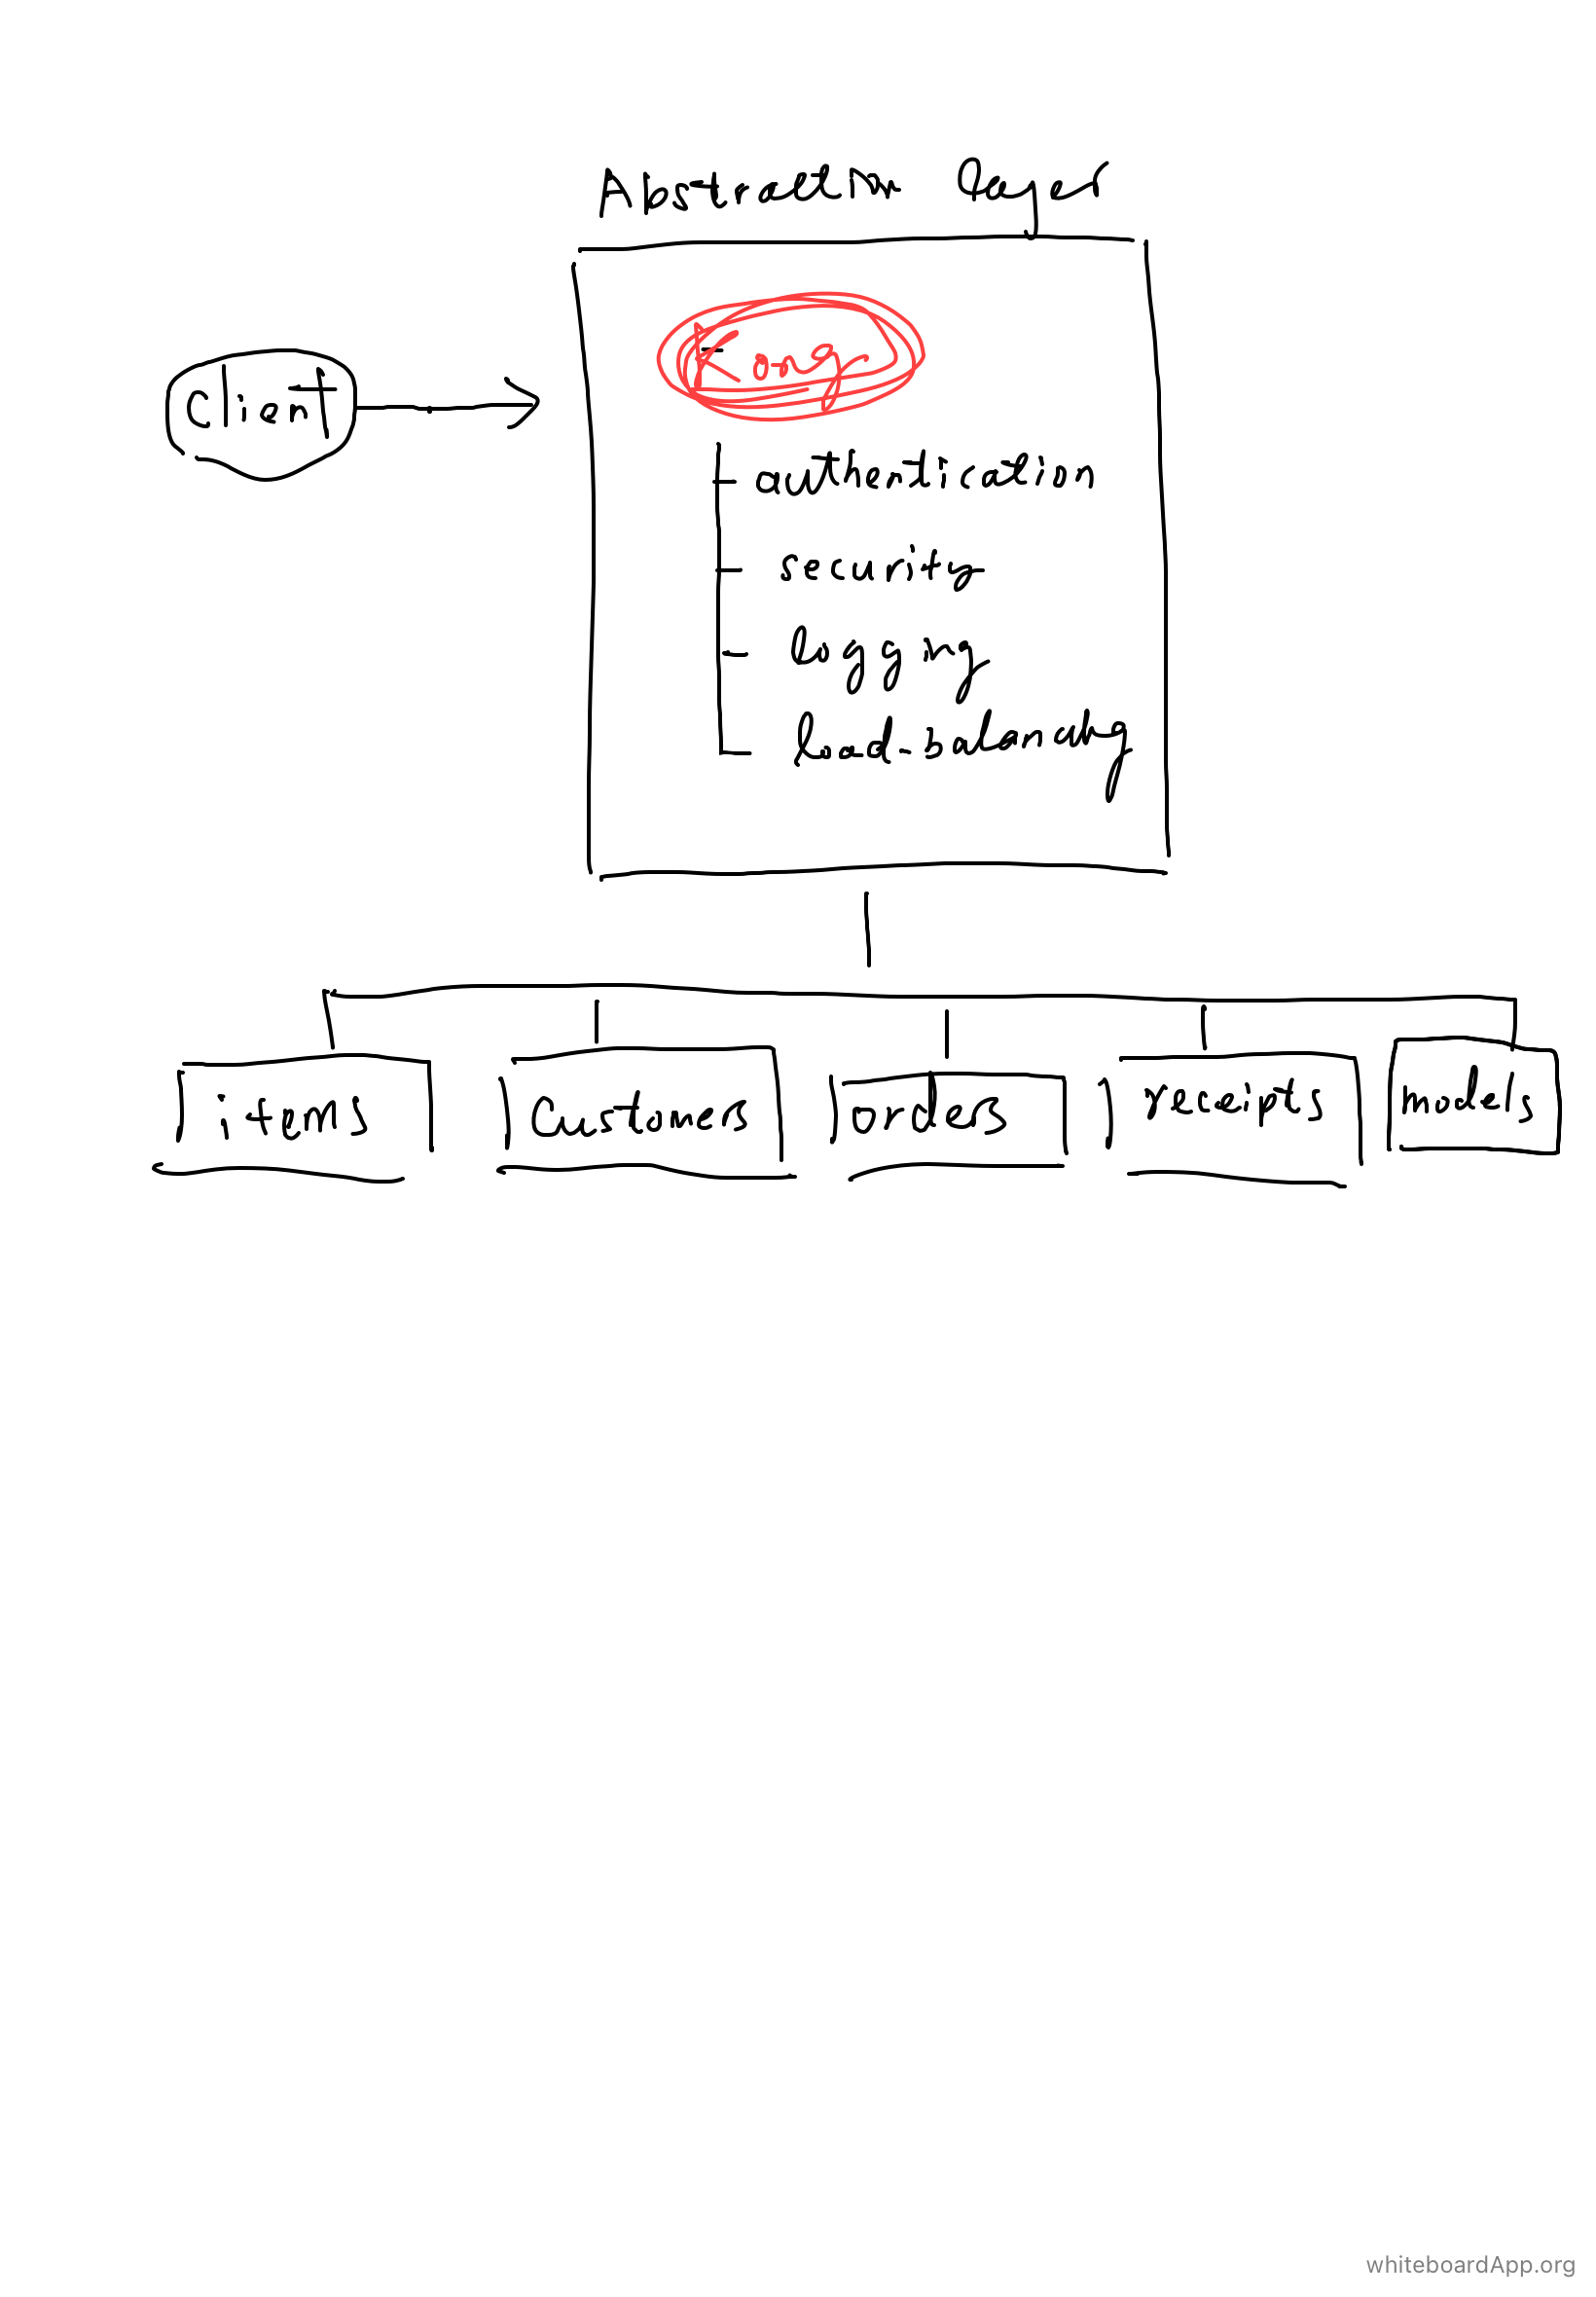 Abstraction layer
Kong
Client
authentication
security
logging
load-balancing
items
Customers
orders
receipts
models
whiteboardApp.org